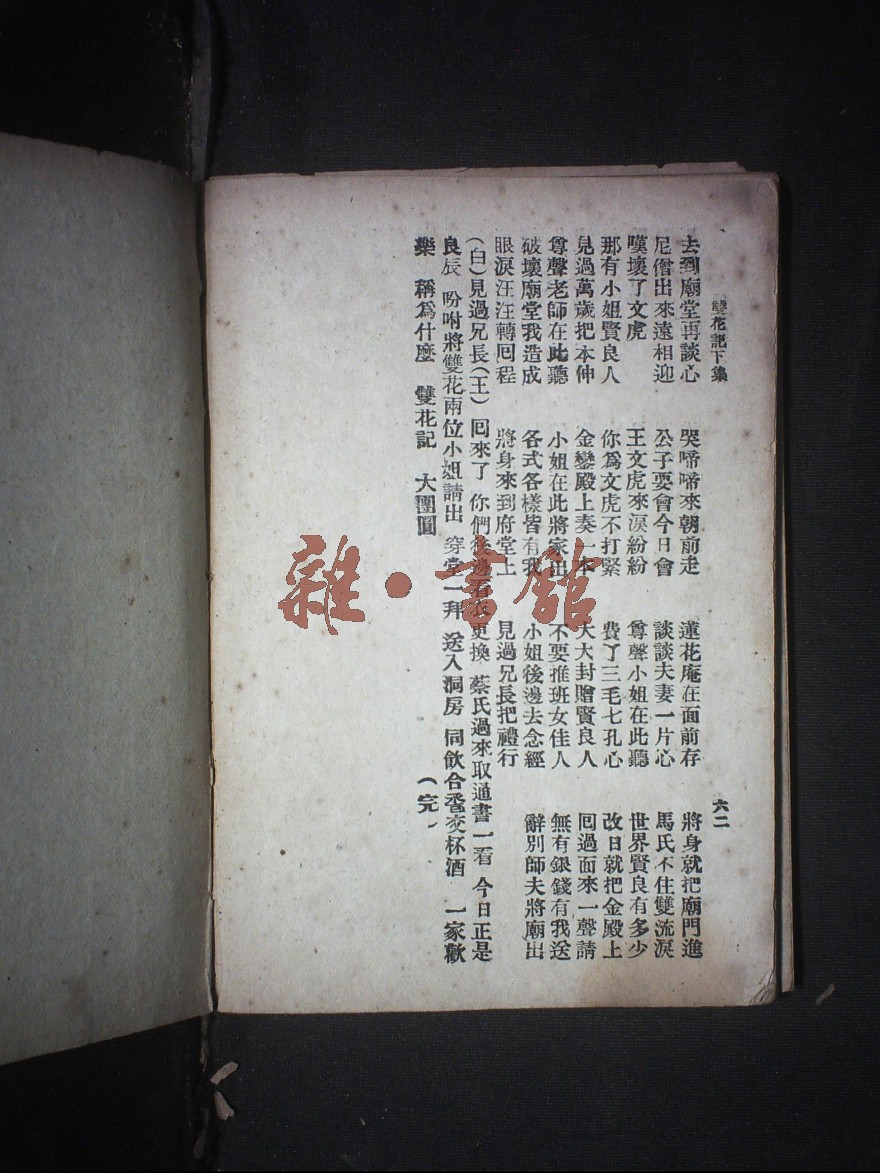 雙花記下集 六二
去到廟堂再談心 哭啼啼來朝前走 蓮花庵在面前存 將身就把廟門進
尼僧出來遠相迎 公子要會今日會 談談夫妻一片心 馬氏不住雙流淚
嘆壞了文虎 王文虎來淚紛紛 尊聲小姐在此聽 世界賢良有多少
那有小姐賢良人 你為文虎不打緊 費了三毛七孔心 改日就把金殿上
見過萬歲把本伸 金鑾殿上奏一本 大大封贈賢良人 回過面來一聲請
尊聲老師在此聽 小姐在此將家出 不要推班女佳人 無有銀錢有我送
破壞廟堂我造成 各式各樣皆有我 小姐後邊去念經 辭別師夫將廟出
眼淚汪汪轉回程 將身來到府堂上 見過兄長把禮行
(白)見過兄長(王) 回來了 你們後邊看衣更換 蔡氏過來取通書一看 今日正是
良辰 吩咐將雙花兩位小姐請出 穿堂一拜 送入洞房 同飲合巹交杯酒 一家歡
樂 稱為什麼 雙花記 大團圓 (完)
雜·書館